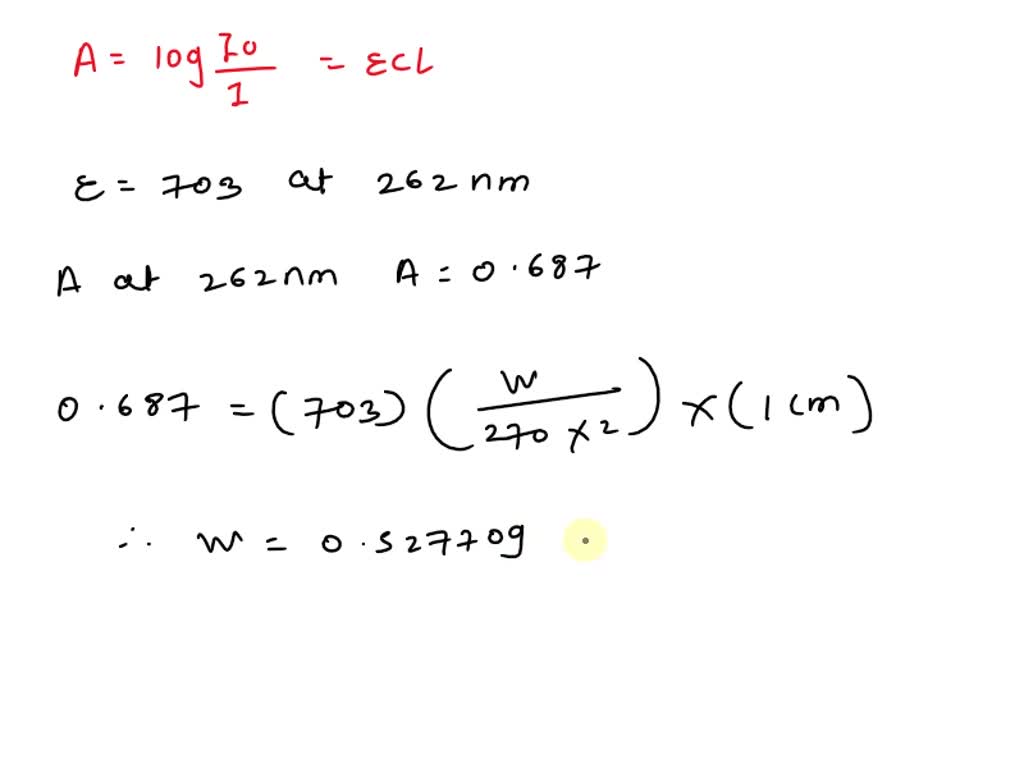 A = log 70/1 = εCL
ε = 703 at 262nm
A at 262nm A = 0.687
0.687 = (703) (W/270×2) × (1cm)
∴ W = 0.52770g